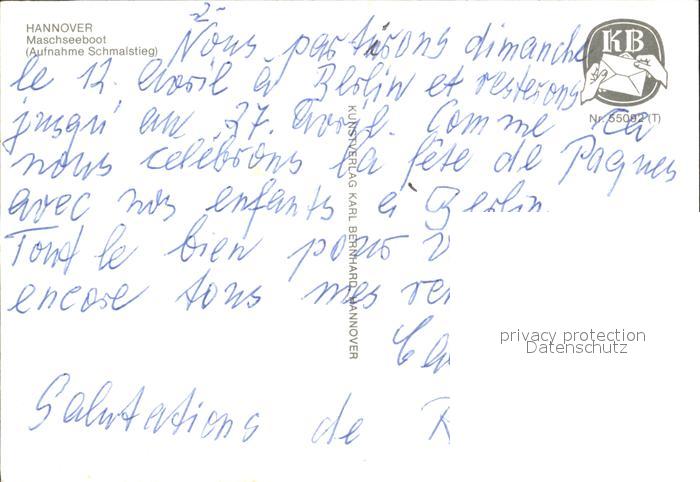 HANNOVER
Maschseeboot
(Aufnahme Schmalstieg)
-2-
KB
Nr. 55092 (T)
Nous partirons dimanche
le 12. Avril à Berlin et resterons
jusqu'au 27. Avril. Comme
nous celebrons la fête de Paques
avec nos enfants à Berlin.
Tout le bien pour
encore tous mes
Salutations de
KUNSTVERLAG KARL BERNHARD, HANNOVER
privacy protection
Datenschutz